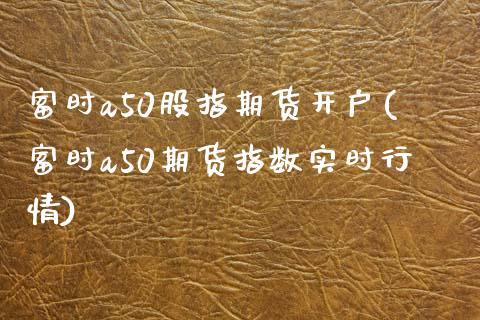 富时a50股指期货开户(
富时a50期货指数实时行
情)